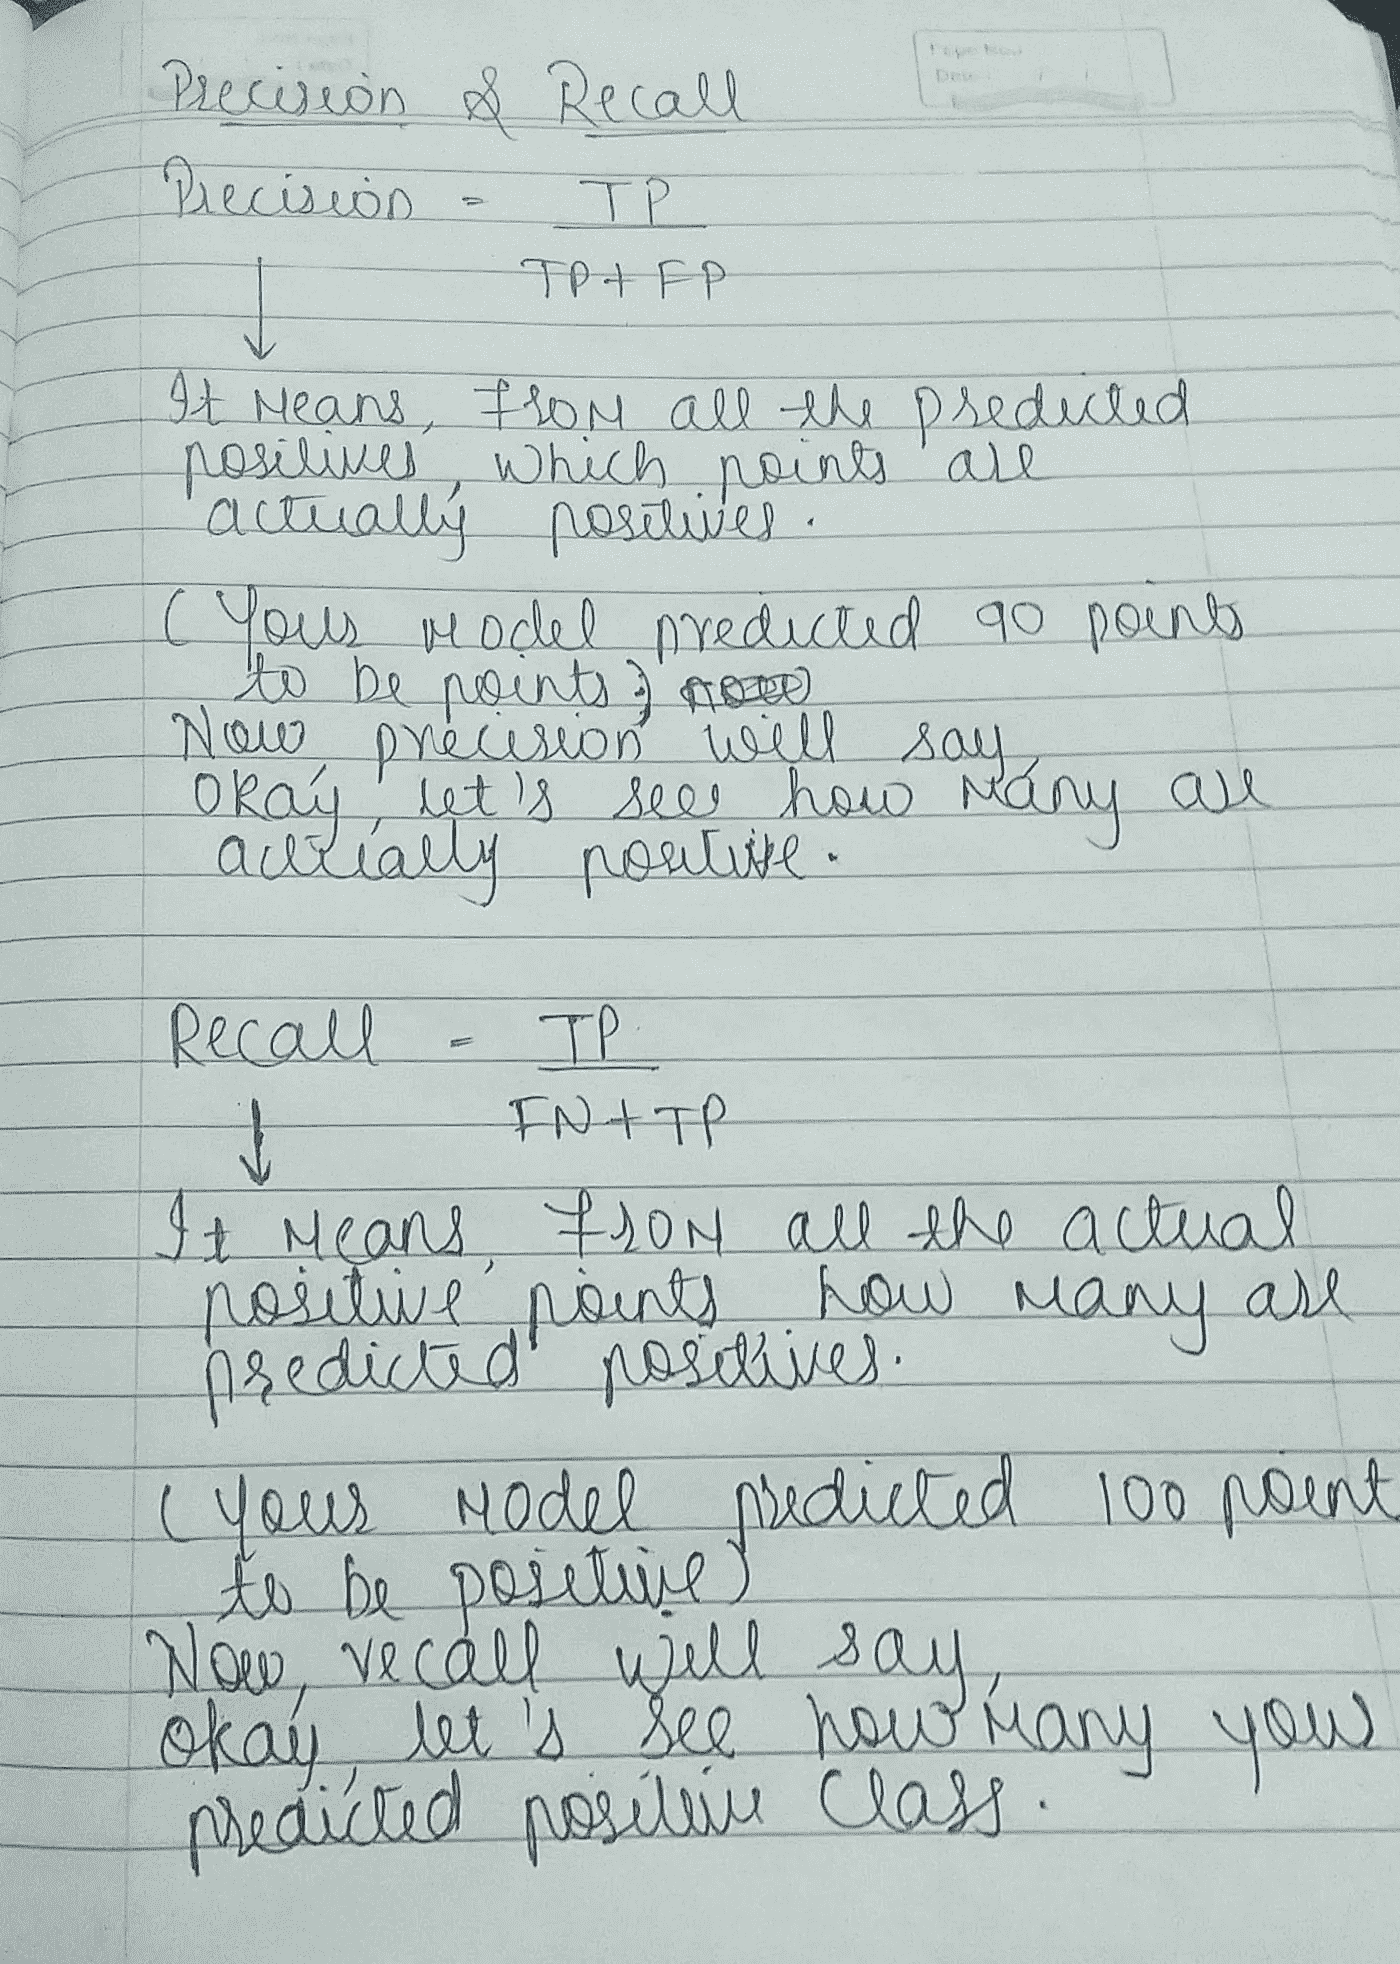 Precision & Recall
Precision = TP
TP + FP
It means, from all the predicted
positives, which points are
actually positives.
(Your model predicted 90 points
to be points;)
Now precision will say,
okay, let's see how many are
actually positive.
Recall = TP
FN + TP
It means, from all the actual
positive points how many are
predicted positives.
(Your model predicted 100 point
to be positive)
Now, recall will say,
okay, let's see how many you
predicted positive class.